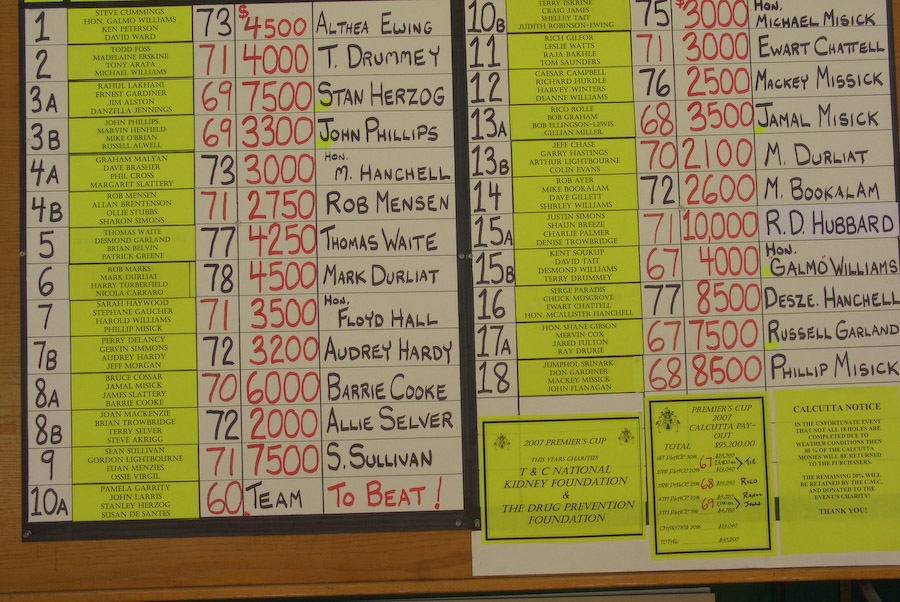 1
STEVE CUMMINGS
HON. GALMO WILLIAMS
KEN PETERSON
DAVID WARD
73
$4500
ALTHEA EWING
2
TODD FOSS
MADELAINE ERSKINE
TONY ARATA
MICHAEL WILLIAMS
71
4000
T. DRUMMEY
3A
RAHUL LAKHANI
ERNEST GARDINER
JIM ALSTON
DANZELLA JENNINGS
69
7500
STAN HERZOG
3B
JOHN PHILLIPS
MARVIN HENFIELD
MIKE O'BRIAN
RUSSELL ALWELL
69
3300
JOHN PHILLIPS
4A
GRAHAM MALYAN
DAVE BRASHER
PHIL CROSS
MARGARET SLATTERY
73
3000
HON.
M. HANCHELL
4B
ROB MENSEN
ALLAN BRENTENSON
OLLIE STUBBS
SHARON SIMONS
71
2750
ROB MENSEN
5
THOMAS WAITE
DESMOND GARLAND
BRIAN BELVIN
PATRICK GREENE
77
4250
THOMAS WAITE
6
ROB MARKS
MARK DURLIAT
HARRY TURBERFIELD
NICOLA CARRARO
78
4500
MARK DURLIAT
7
SARAH HAYWOOD
STEPHANE GAUCHER
HAROLD WILLIAMS
PHILLIP MISICK
71
3500
HON.
FLOYD HALL
7B
PERRY DELANCY
GERVIN SIMMONS
AUDREY HARDY
JEFF MORGAN
72
3200
AUDREY HARDY
8A
BRUCE COSSAR
JAMAL MISICK
JAMES SLATTERY
BARRIE COOKE
70
6000
BARRIE COOKE
8B
JOAN MACKENZIE
BRIAN TROWBRIDGE
TERRY SELVER
STEVE AKRIGG
72
2000
ALLIE SELVER
9
SEAN SULLIVAN
GORDON LIGHTBOURNE
EUAN MENZIES
OSSIE VIRGIL
71
7500
S. SULLIVAN
10A
PAMELA GARRITY
JOHN LARRIS
STANLEY HERZOG
SUSAN DE SANTES
60
TEAM
TO BEAT!
10B
TERRY ERSKINE
CRAIG JAMES
SHELLEY TAIT
JUDITH ROBINSON-EWING
75
$3000
HON.
MICHAEL MISICK
11
RICH GILFOR
LESLIE WATTS
RAJA BAKHLE
TOM SAUNDERS
71
3000
EWART CHATTELL
12
CAESAR CAMPBELL
RICHARD HURDLE
HARVEY WINTERS
DEANNE WILLIAMS
76
2500
MACKEY MISSICK
13A
RICO ROLLE
BOB GRAHAM
BOB ELLINGSON-LEWIS
GILLIAN MILLER
68
3500
JAMAL MISICK
13B
JEFF CHASE
GARRY HASTINGS
ARTHUR LIGHTBOURNE
COLIN EVANS
70
2100
M. DURLIAT
14
ROB AYER
MIKE BOOKALAM
DAVE GILLETT
SHIRLEY WILLIAMS
72
2600
M. BOOKALAM
15A
JUSTIN SIMONS
SHAUN BREEZE
CHARLIE PALMER
DENISE TROWBRIDGE
71
10,000
R.D. HUBBARD
15B
KENT SOUKUP
DAVID TAIT
DESMOND WILLIAMS
TERRY DRUMMEY
67
4000
HON.
GALMO WILLIAMS
16
SERGE PARADIS
CHUCK MUSGROVE
EWART CHATTELL
HON. MCALLISTER HANCHELL
77
8500
DESZE. HANCHELL
17A
HON. SHANE GIBSON
MERVIN COX
JARED FULTON
RAY DRURIE
67
7500
RUSSELL GARLAND
18
JUMPHOL SRINARK
DON GARDINER
MACKEY MISSICK
JOHN FLANAGAN
68
8500
PHILLIP MISICK
2007 PREMIER'S CUP
THIS YEARS CHARITIES
T & C NATIONAL
KIDNEY FOUNDATION
&
THE DRUG PREVENTION
FOUNDATION
PREMIER'S CUP
2007
CALCUTTA PAY-
OUT
TOTAL $95,200.00
67 TIE
68 RICO
69
CHARITIES 20%
TOTAL: $95,200
CALCUTTA NOTICE
IN THE UNFORTUNATE EVENT
THAT NOT ALL 18 HOLES ARE
COMPLETED DUE TO
WEATHER CONDITIONS THEN
80 % OF THE CALCUTTA
MONIES WILL BE RETURNED
TO THE PURCHASERS.
THE REMAINING 20% WILL
BE RETAINED BY THE C.M.C.
AND DONATED TO THE
EVENT'S CHARITY!
THANK YOU!